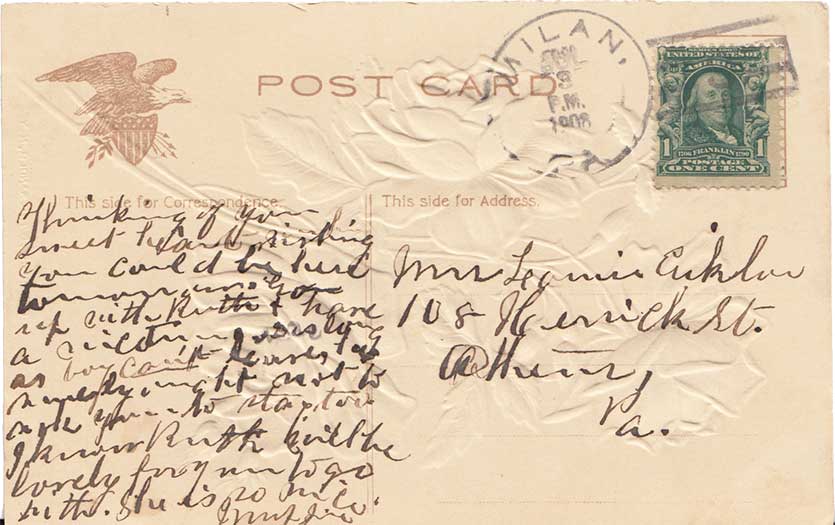 POST CARD
MILAN,
JUL
3
P.M.
1908
PA
UNITED STATES OF
AMERICA
1
1706 FRANKLIN 1790
POSTAGE
ONE CENT
This side for Correspondence.
Thinking of you
sweet heart wishing
you could be here
tomorrow
up with Ruth & have
a as long
as
ought not to
ask you to stay too
I know Ruth will be
lovely for you to go
with. She is so nice.
This side for Address.
Mrs
108 Herrick St.
Athens,
Pa.